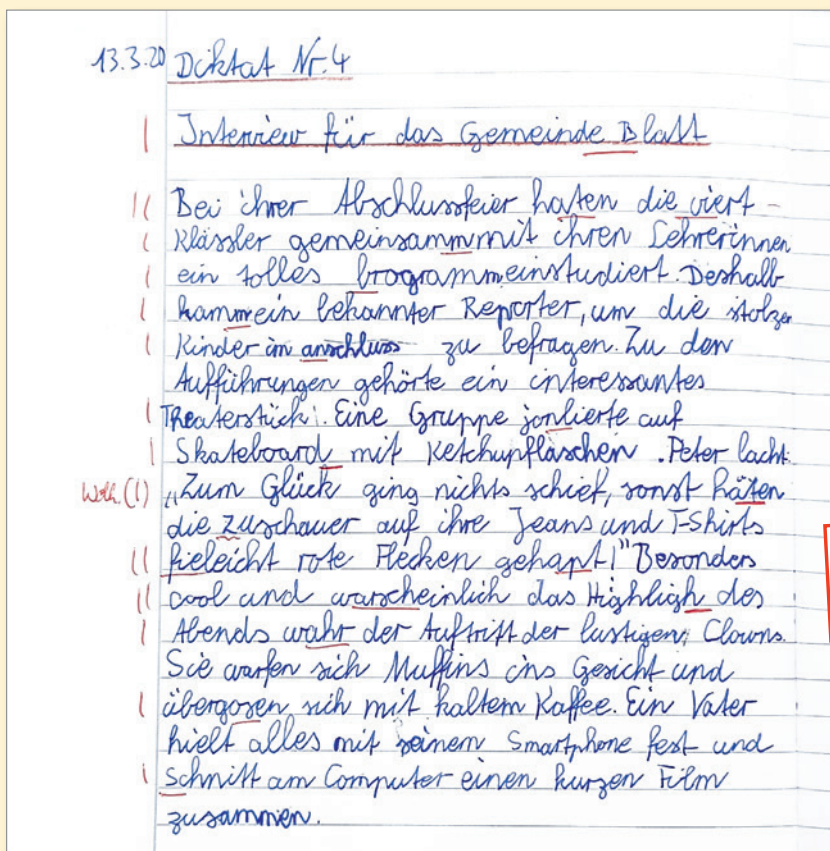 13.3.20 Diktat Nr. 4
| Interview für das Gemeinde Blatt
|| Bei ihrer Abschlussfeier haten die viert-
| Klässler gemeinsamm mit ihren Lehrerinnen
| ein tolles brogramm einstudiert. Deshalb
| kamm ein bekannter Reporter, um die stolzen
| Kinder im anschluss zu befragen. Zu den
Aufführungen gehörte ein interessantes
| Theaterstück. Eine Gruppe jonlierte auf
| Skateboard mit Ketchupflaschen. Peter lacht:
Wdh. (|) „Zum Glück ging nichts schief, sonst häten
die Zuschauer auf ihre Jeans und T-Shirts
|| fieleicht rote Flecken gehapt!" Besonders
|| cool und warscheinlich das Highligh des
| Abends wahr der Auftritt der lustigen Clowns.
Sie warfen sich Muffins ins Gesicht und
| übergosen sich mit kaltem Kaffee. Ein Vater
hielt alles mit seinem Smartphone fest und
| Schnitt am Computer einen kurzen Film
zusammen.